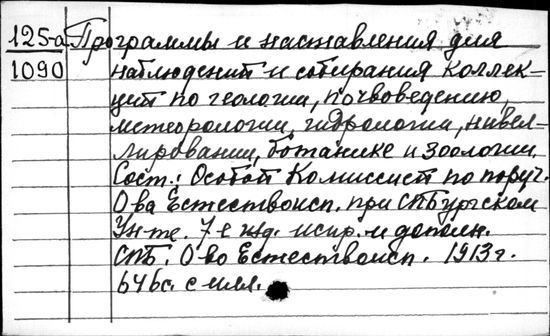 125-а Программы и наставления для
1090 наблюдений и собирания коллек-
ций по геологии, почвоведению,
метеорологии, гидрологии, нивел-
лировании, ботанике и зоологии.
Сост.: Особой Комиссией по поруч.
О-ва Естествоисп. при СПБургском
Ун-те. 7-е изд. испр. и дополн.
СПБ. О-во Естествоисп. 1913 г.
646 с. с илл.